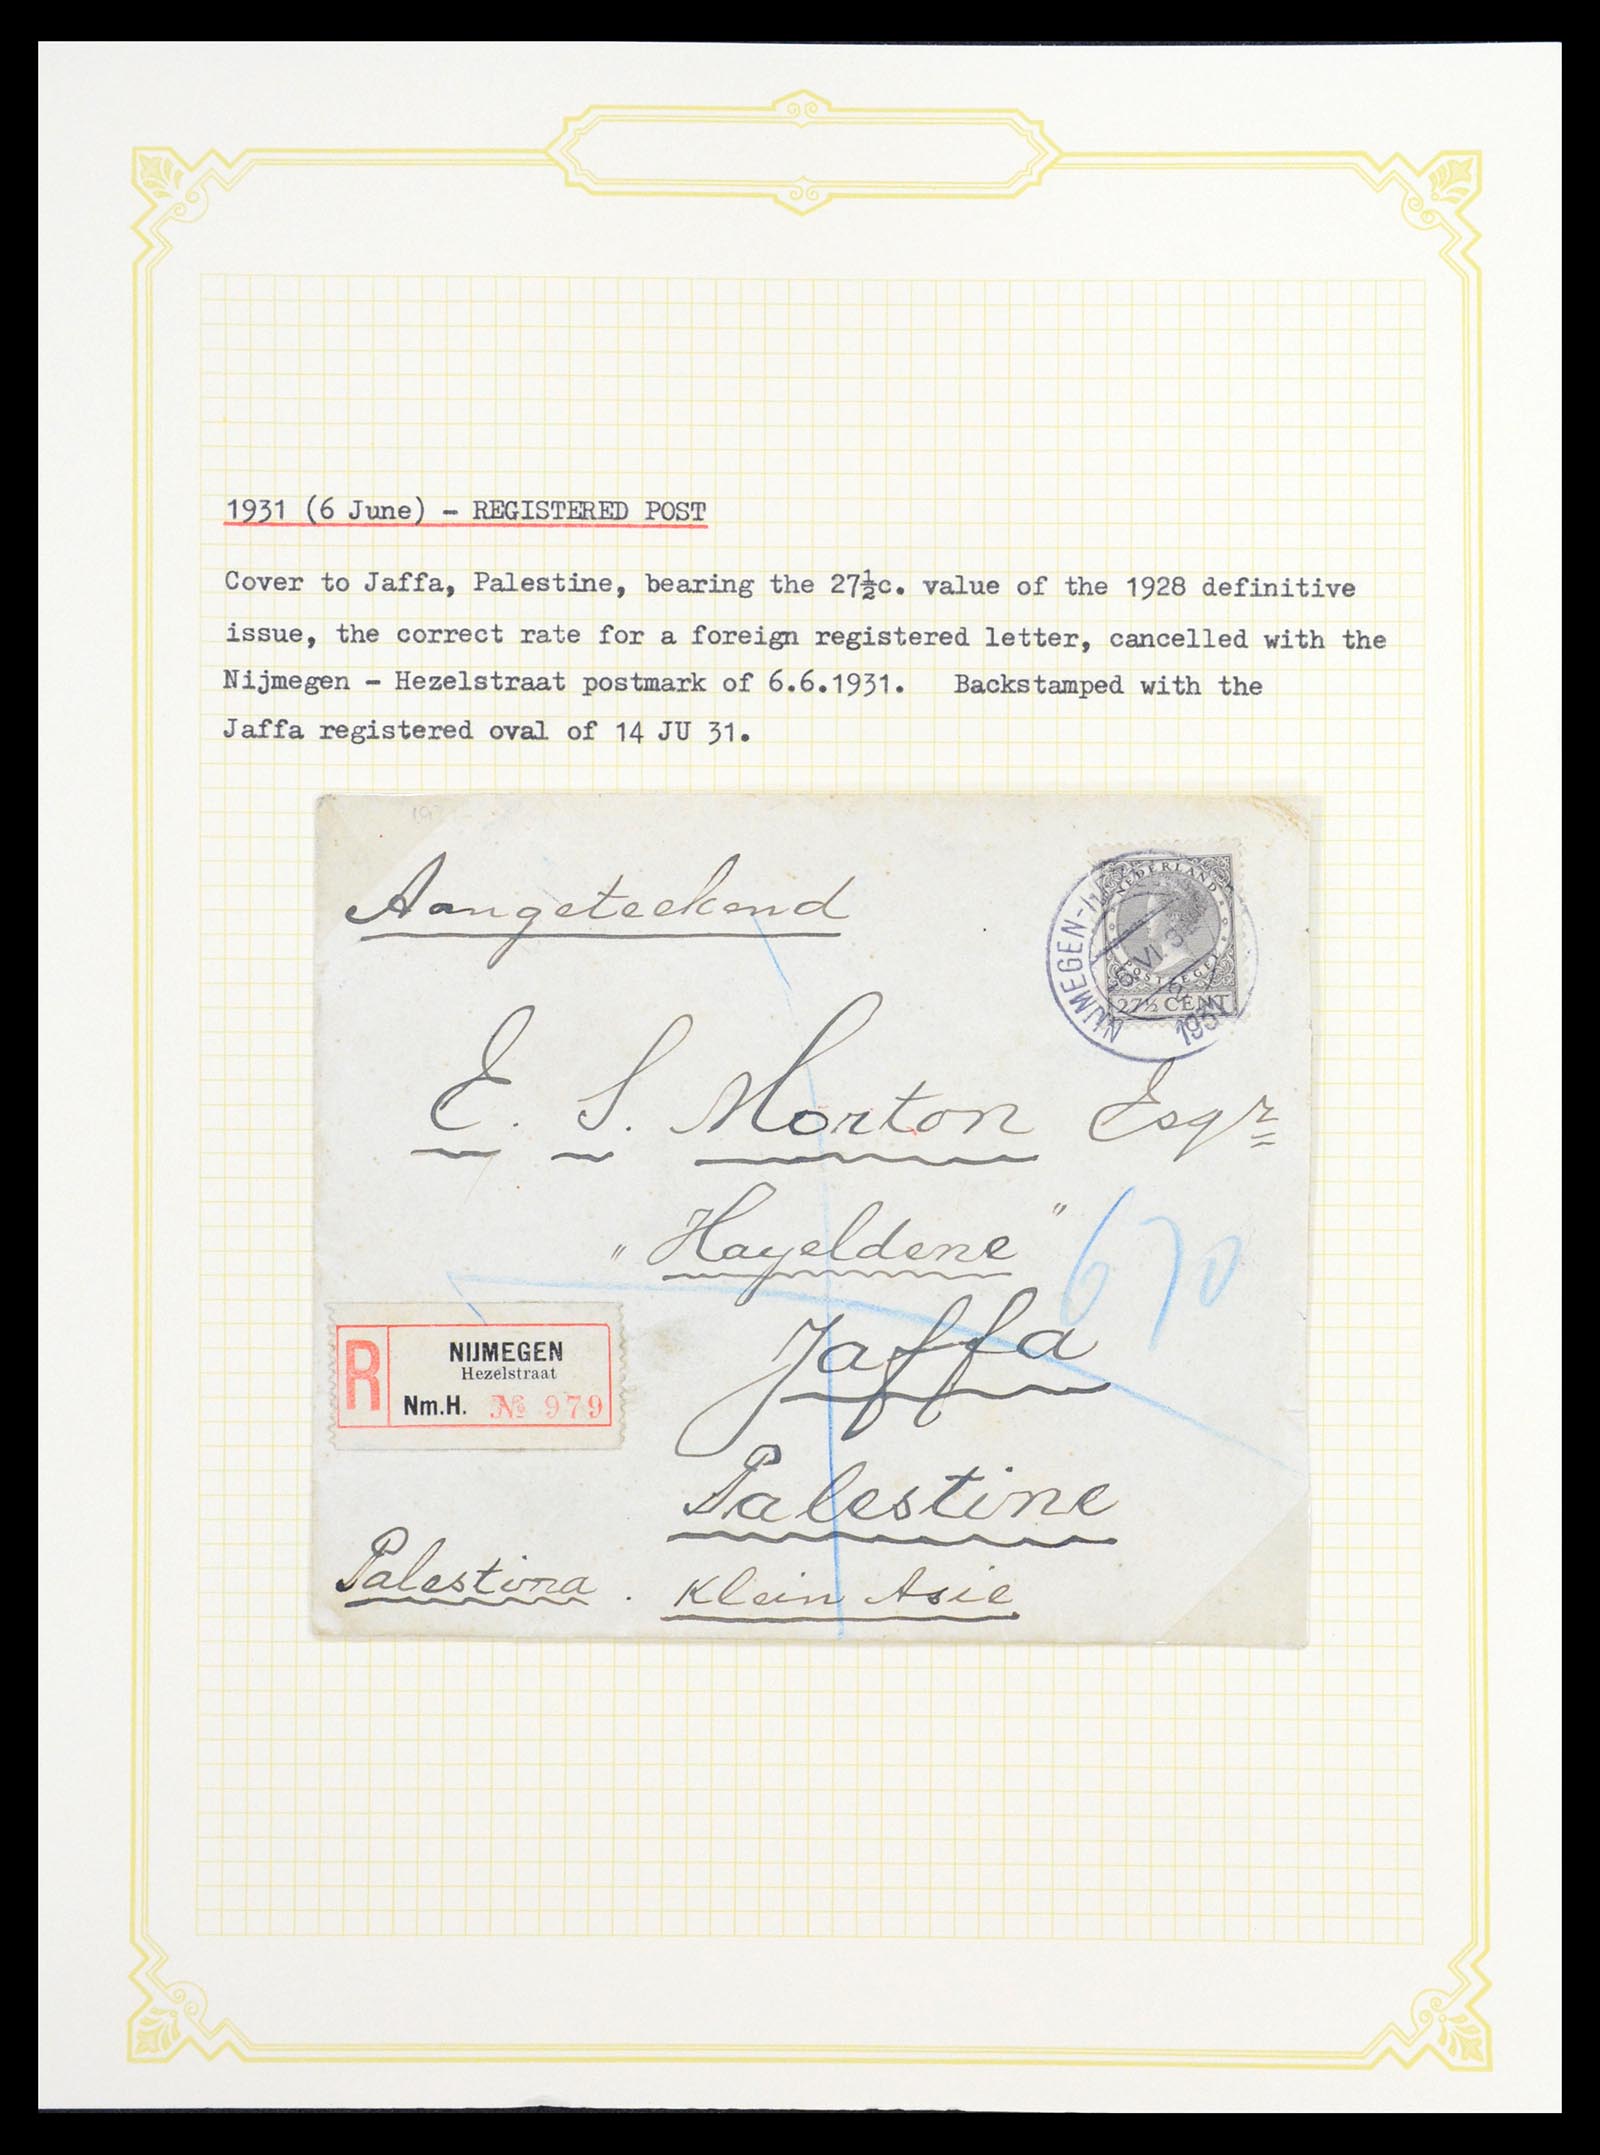 1931 (6 June) - REGISTERED POST
Cover to Jaffa, Palestine, bearing the 27½c. value of the 1928 definitive
issue, the correct rate for a foreign registered letter, cancelled with the
Nijmegen - Hezelstraat postmark of 6.6.1931. Backstamped with the
Jaffa registered oval of 14 JU 31.
Aangeteekend
NEDERLAND
POSTZEGEL
27½ CENT
NIJMEGEN-H
6 VI
1931
E. S. Morton Esqr
„Hayeldene"
670
Jaffa
R
NIJMEGEN
Hezelstraat
Nm.H. № 979
Palestine
Palestina. Klein Asie